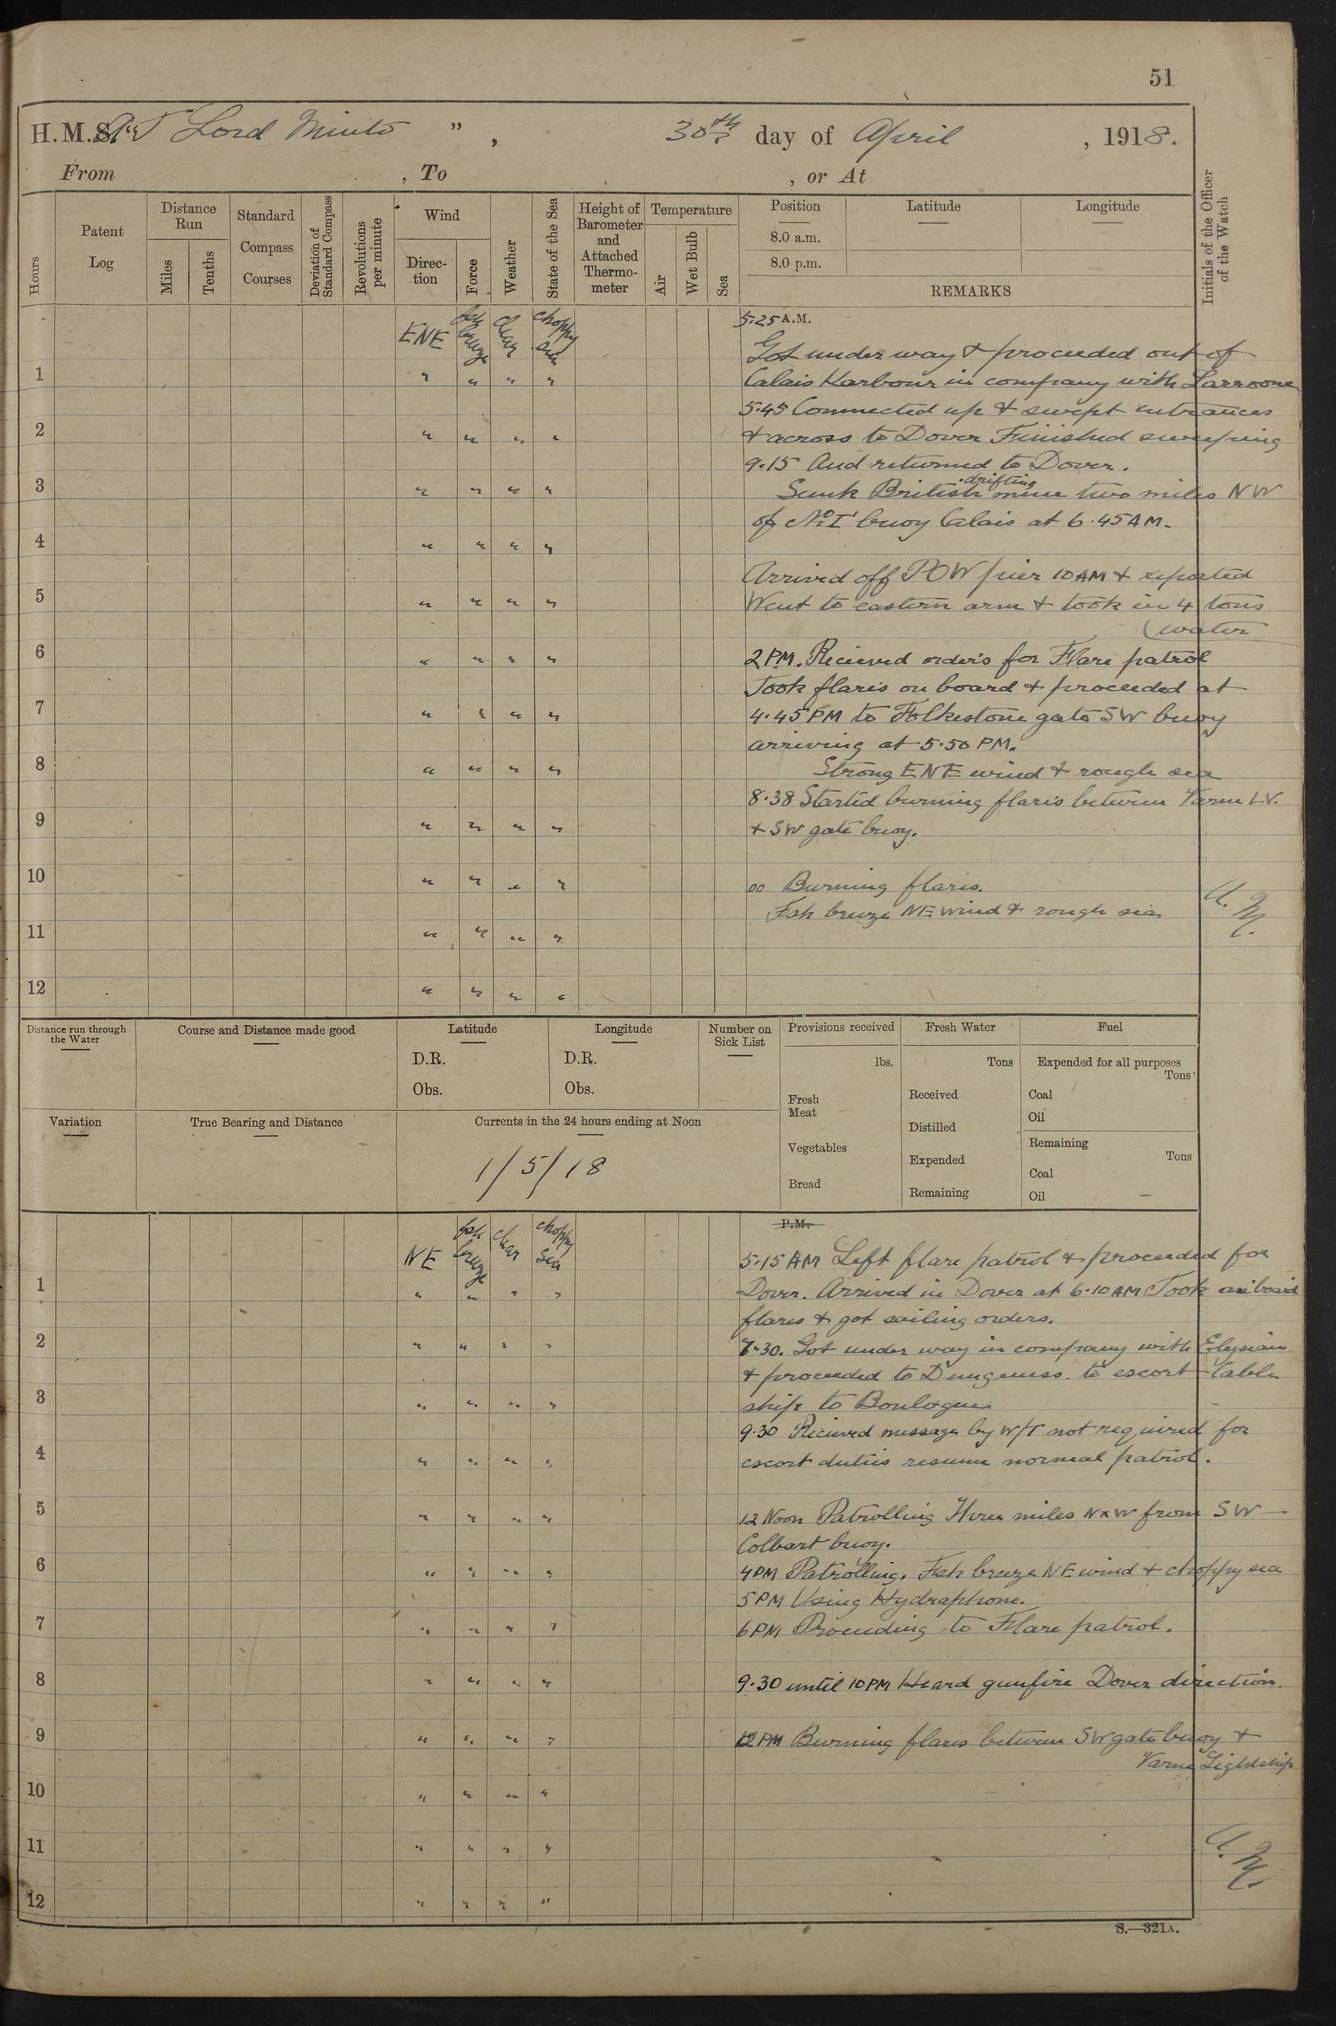 51
H.M.S. "T Lord Minto ", 30th day of April , 1918.
From , To , or At
Hours
Patent Log
Distance Run
Miles
Tenths
Standard Compass Courses
Deviation of Standard Compass
Revolutions per minute
Wind
Direction
Force
Weather
State of the Sea
Height of Barometer and Attached Thermometer
Temperature
Air
Wet Bulb
Sea
Position
8.0 a.m.
8.0 p.m.
Latitude
Longitude
REMARKS
Initials of the Officer of the Watch
ENE fsh breeze clear choppy sea
5.25 A.M.
Got under way & proceeded out of
1 " " " " Calais Harbour in company with Larroone
5.45 Connected up & swept entrances
2 " " " " & across to Dover Finished sweeping
9.15 And returned to Dover.
drifting
3 " " " " Sunk British mine two miles NW
of No I buoy Calais at 6.45 AM.
4 " " " "
Arrived off POW pier 10 AM & reported
5 " " " " Went to eastern arm & took in 4 tons
(water
6 " " " " 2 PM. Recieved orders for Flare patrol
Took flares on board & proceeded at
7 " " " " 4.45 PM to Folkestone gate SW buoy
arriving at 5.50 PM.
8 " " " " Strong ENE wind & rough sea
8.38 Started burning flares between Varne LV.
9 " " " " & SW gate buoy.
10 " " " " 00 Burning flares.
Fsh breeze NE wind & rough sea
11 " " " "
12 " " " "
Distance run through the Water
Course and Distance made good
Latitude
D.R.
Obs.
Longitude
D.R.
Obs.
Number on Sick List
Provisions received
lbs.
Fresh Meat
Vegetables
Bread
Fresh Water
Tons
Received
Distilled
Expended
Remaining
Fuel
Expended for all purposes
Tons
Coal
Oil
Remaining
Tons
Coal
Oil —
Variation
True Bearing and Distance
Currents in the 24 hours ending at Noon
1/5/18
P.M.
NE fsh breeze clear choppy sea
5.15 AM Left flare patrol & proceeded for
1 " " " " Dover. Arrived in Dover at 6.10 AM Took on board
flares & got sailing orders.
2 " " " " 7.30. Got under way in company with Elysian
& proceeded to Dungeness. to escort Cable
3 " " " " ship to Boulogne
9.30 Recieved message by W/T not required for
4 " " " " escort duties resume normal patrol.
5 " " " " 12 Noon Patrolling three miles NxW from SW
Colbart buoy.
6 " " " " 4 PM Patrolling. Fsh breeze NE wind & choppy sea
5 PM Using Hydraphone.
7 " " " " 6 PM Proceeding to Flare patrol.
8 " " " " 9.30 until 10 PM Heard gunfire Dover direction.
9 " " " " 12 PM Burning flares between SW gate buoy &
Varne Lightship
10 " " " "
11 " " " "
12 " " " "
S.—321A.